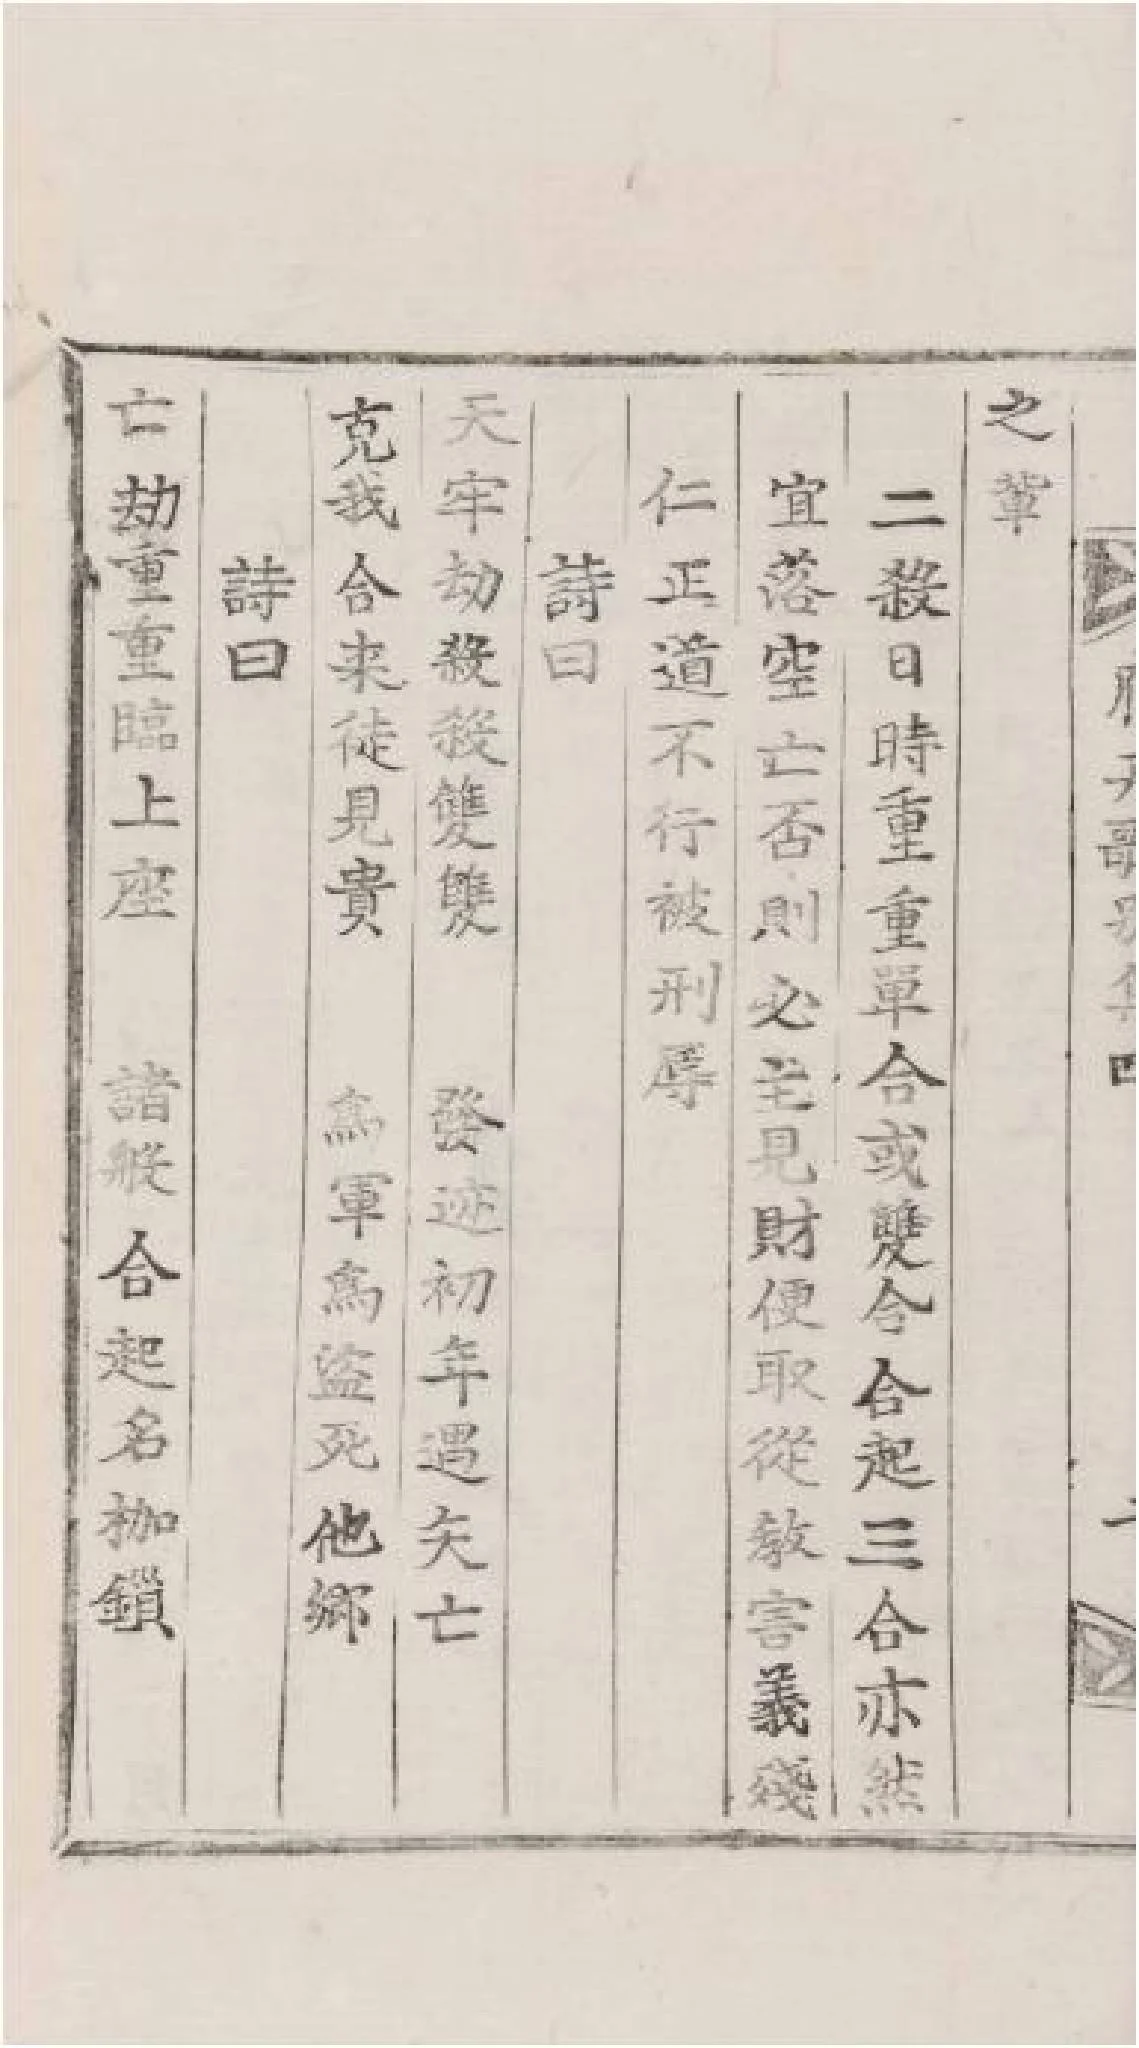 之輩
二殺日時重重單合或雙合合起三合亦然
宜落空亡否則必主見財便取從教害義殘
仁正道不行被刑辱
詩曰
天牢劫殺殺雙雙 發迹初年遇夭亡
克我合来徒見貴 為軍為盜死他鄉
詩曰
亡劫重重臨上座 諸般合起名枷鎖